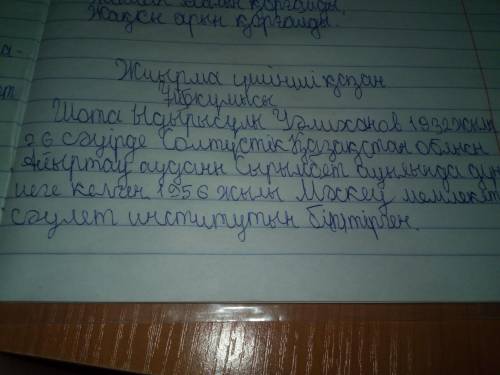 малын қорғайды,
Жақсы арын қорғайды
Жиырма үшінші қазан
Үй жұмысы
Шота Ыдырысұлы Уәлиханов 1932 жылы
26 сәуірде Солтүстік Қазақстан облысы
Айыртау ауданы Сырымбет ауылында дүн
иеге келген 1956 жылы Мәскеу мемлекет
сәулет институтын бітірген.